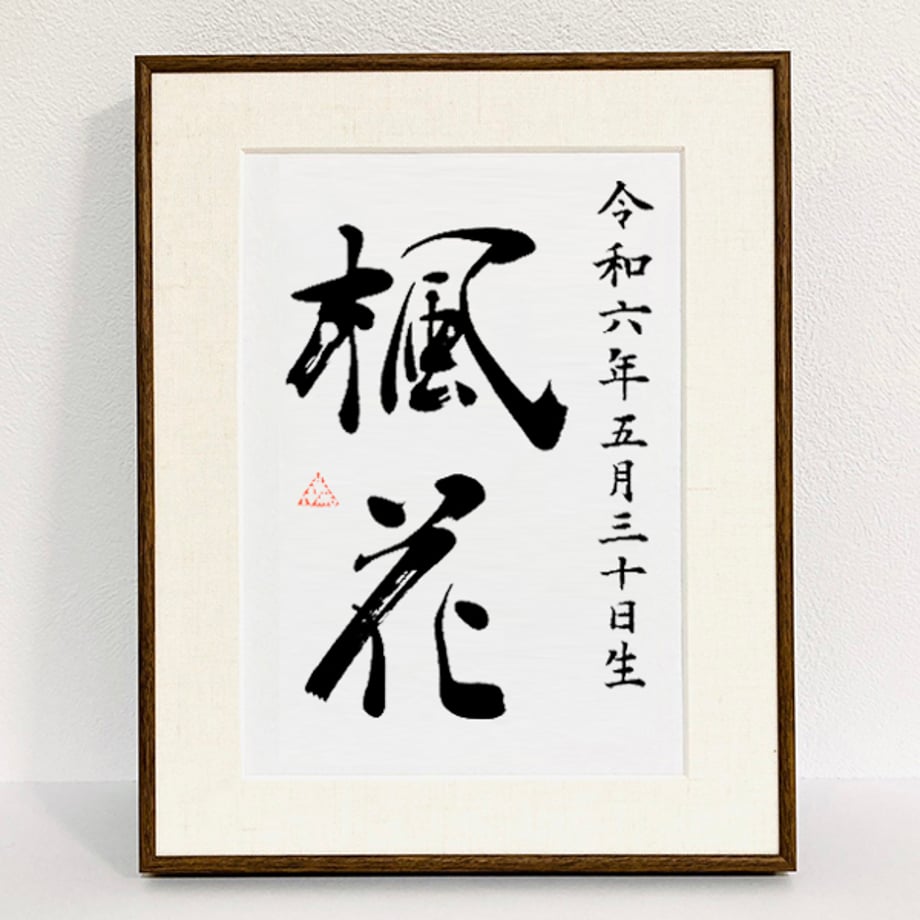 令和六年五月三十日生
楓花